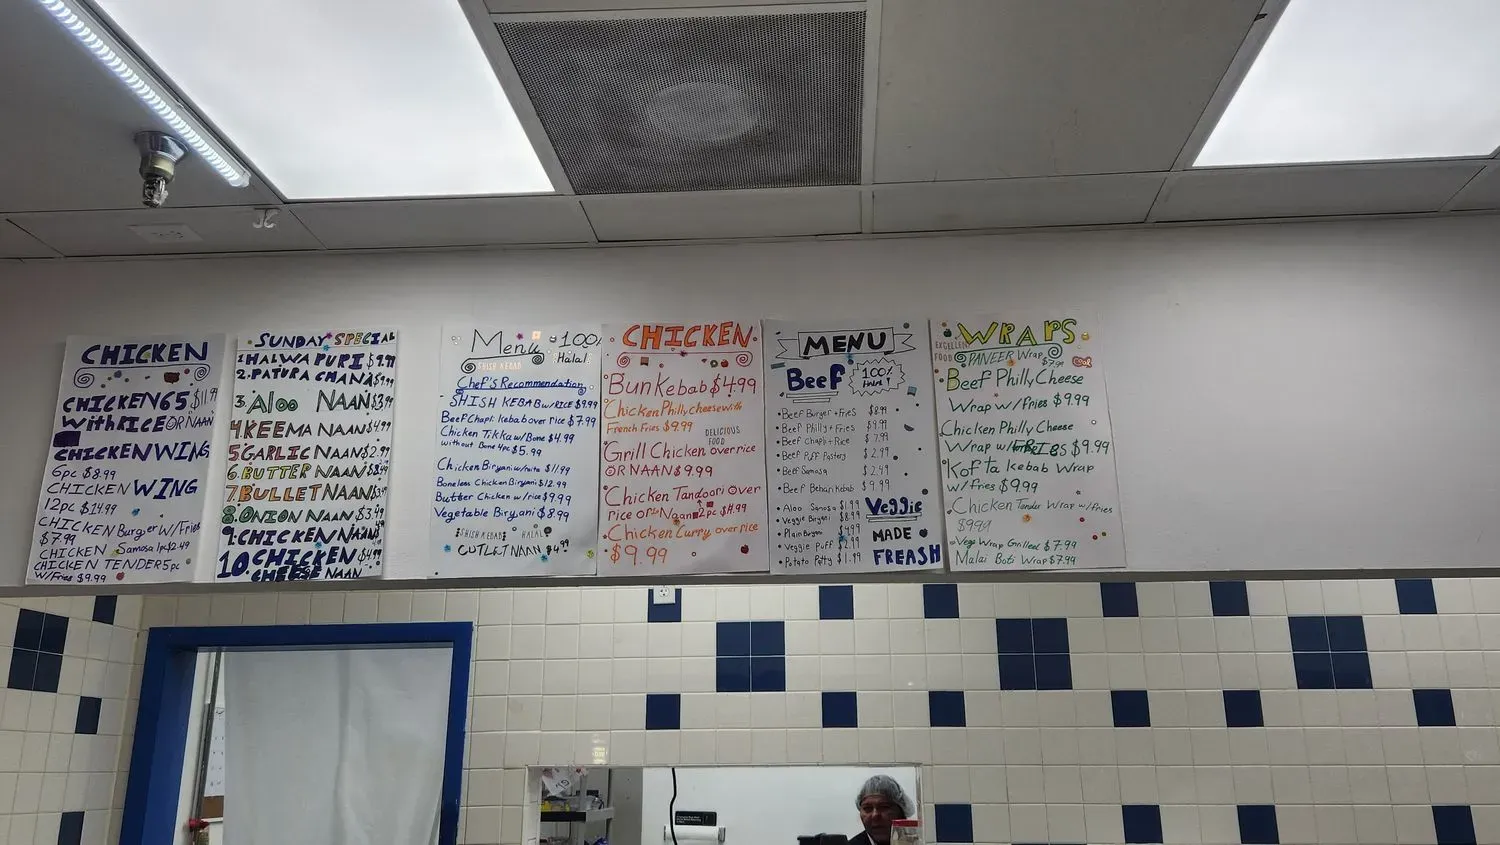 CHICKEN
CHICKEN65 $11.99
With RICE OR NAAN
CHICKEN WING
6pc $8.99
CHICKEN WING
12pc $14.99
CHICKEN Burger W/Fries
$7.99
CHICKEN Samosa 1pc $2.49
CHICKEN TENDER 5pc
W/Fries $9.99
SUNDAY SPECIAL
1. HALWA PURI
2. PATURA CHANA
3. Aloo NAAN $3.99
4. KEEMA NAAN $4.99
5 GARLIC NAAN $2.99
6. BUTTER NAAN
7. BULLET NAAN
8. ONION NAAN $3.49
9. CHICKEN NAAN
10 CHICKEN $4.99
CHEESE NAAN
Menu 100%
Halal
SHISH KEBAB
Chef's Recommendation
SHISH KEBAB w/RICE $9.99
Beef Chapli kebab over rice $7.99
Chicken Tikka w/Bone $4.99
without Bone 4pc $5.99
Chicken Biryani w/raita $11.99
Boneless Chicken Biryani $12.99
Butter Chicken w/rice $9.99
Vegetable Biryani $8.99
SHISH KEBAB HALAL
CUTLET NAAN $4.99
CHICKEN
Bun Kebab $4.99
Chicken Philly cheese with
French Fries $9.99
DELICIOUS
FOOD
Grill Chicken over rice
OR NAAN $9.99
Chicken Tandoori Over
rice or Naan 2pc
Chicken Curry over rice
$9.99
MENU
Beef 100%
Halal
Beef Burger + Fries $8.99
Beef Philly + Fries $9.99
Beef Chapli + Rice $7.99
Beef Puff Pastery $2.99
Beef Samosa $2.49
Beef Behari Kebab $9.99
Veggie
Aloo Samosa $1.99
Veggie Biryani $8.99
Plain Biryani $4.99
Veggie Puff $2.99
Potato Patty $1.99
MADE
FREASH
WRAPS
EXCELLENT
FOOD
PANEER Wrap $7.99
Beef Philly Cheese
Wrap w/Fries $9.99
Chicken Philly Cheese
Wrap w/FRIES $9.99
Kofta Kebab Wrap
w/fries $9.99
Chicken Tender Wrap w/Fries
$9.99
Vege Wrap Grilled $7.99
Malai Boti Wrap $7.99